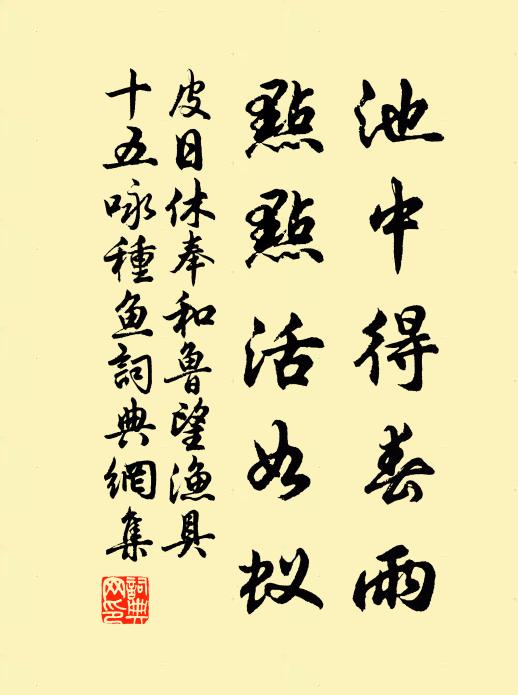 池中得春雨
點點活如蚁
皮日休奉和魯望漁具
十五咏種鱼詞典網集
詞典網印